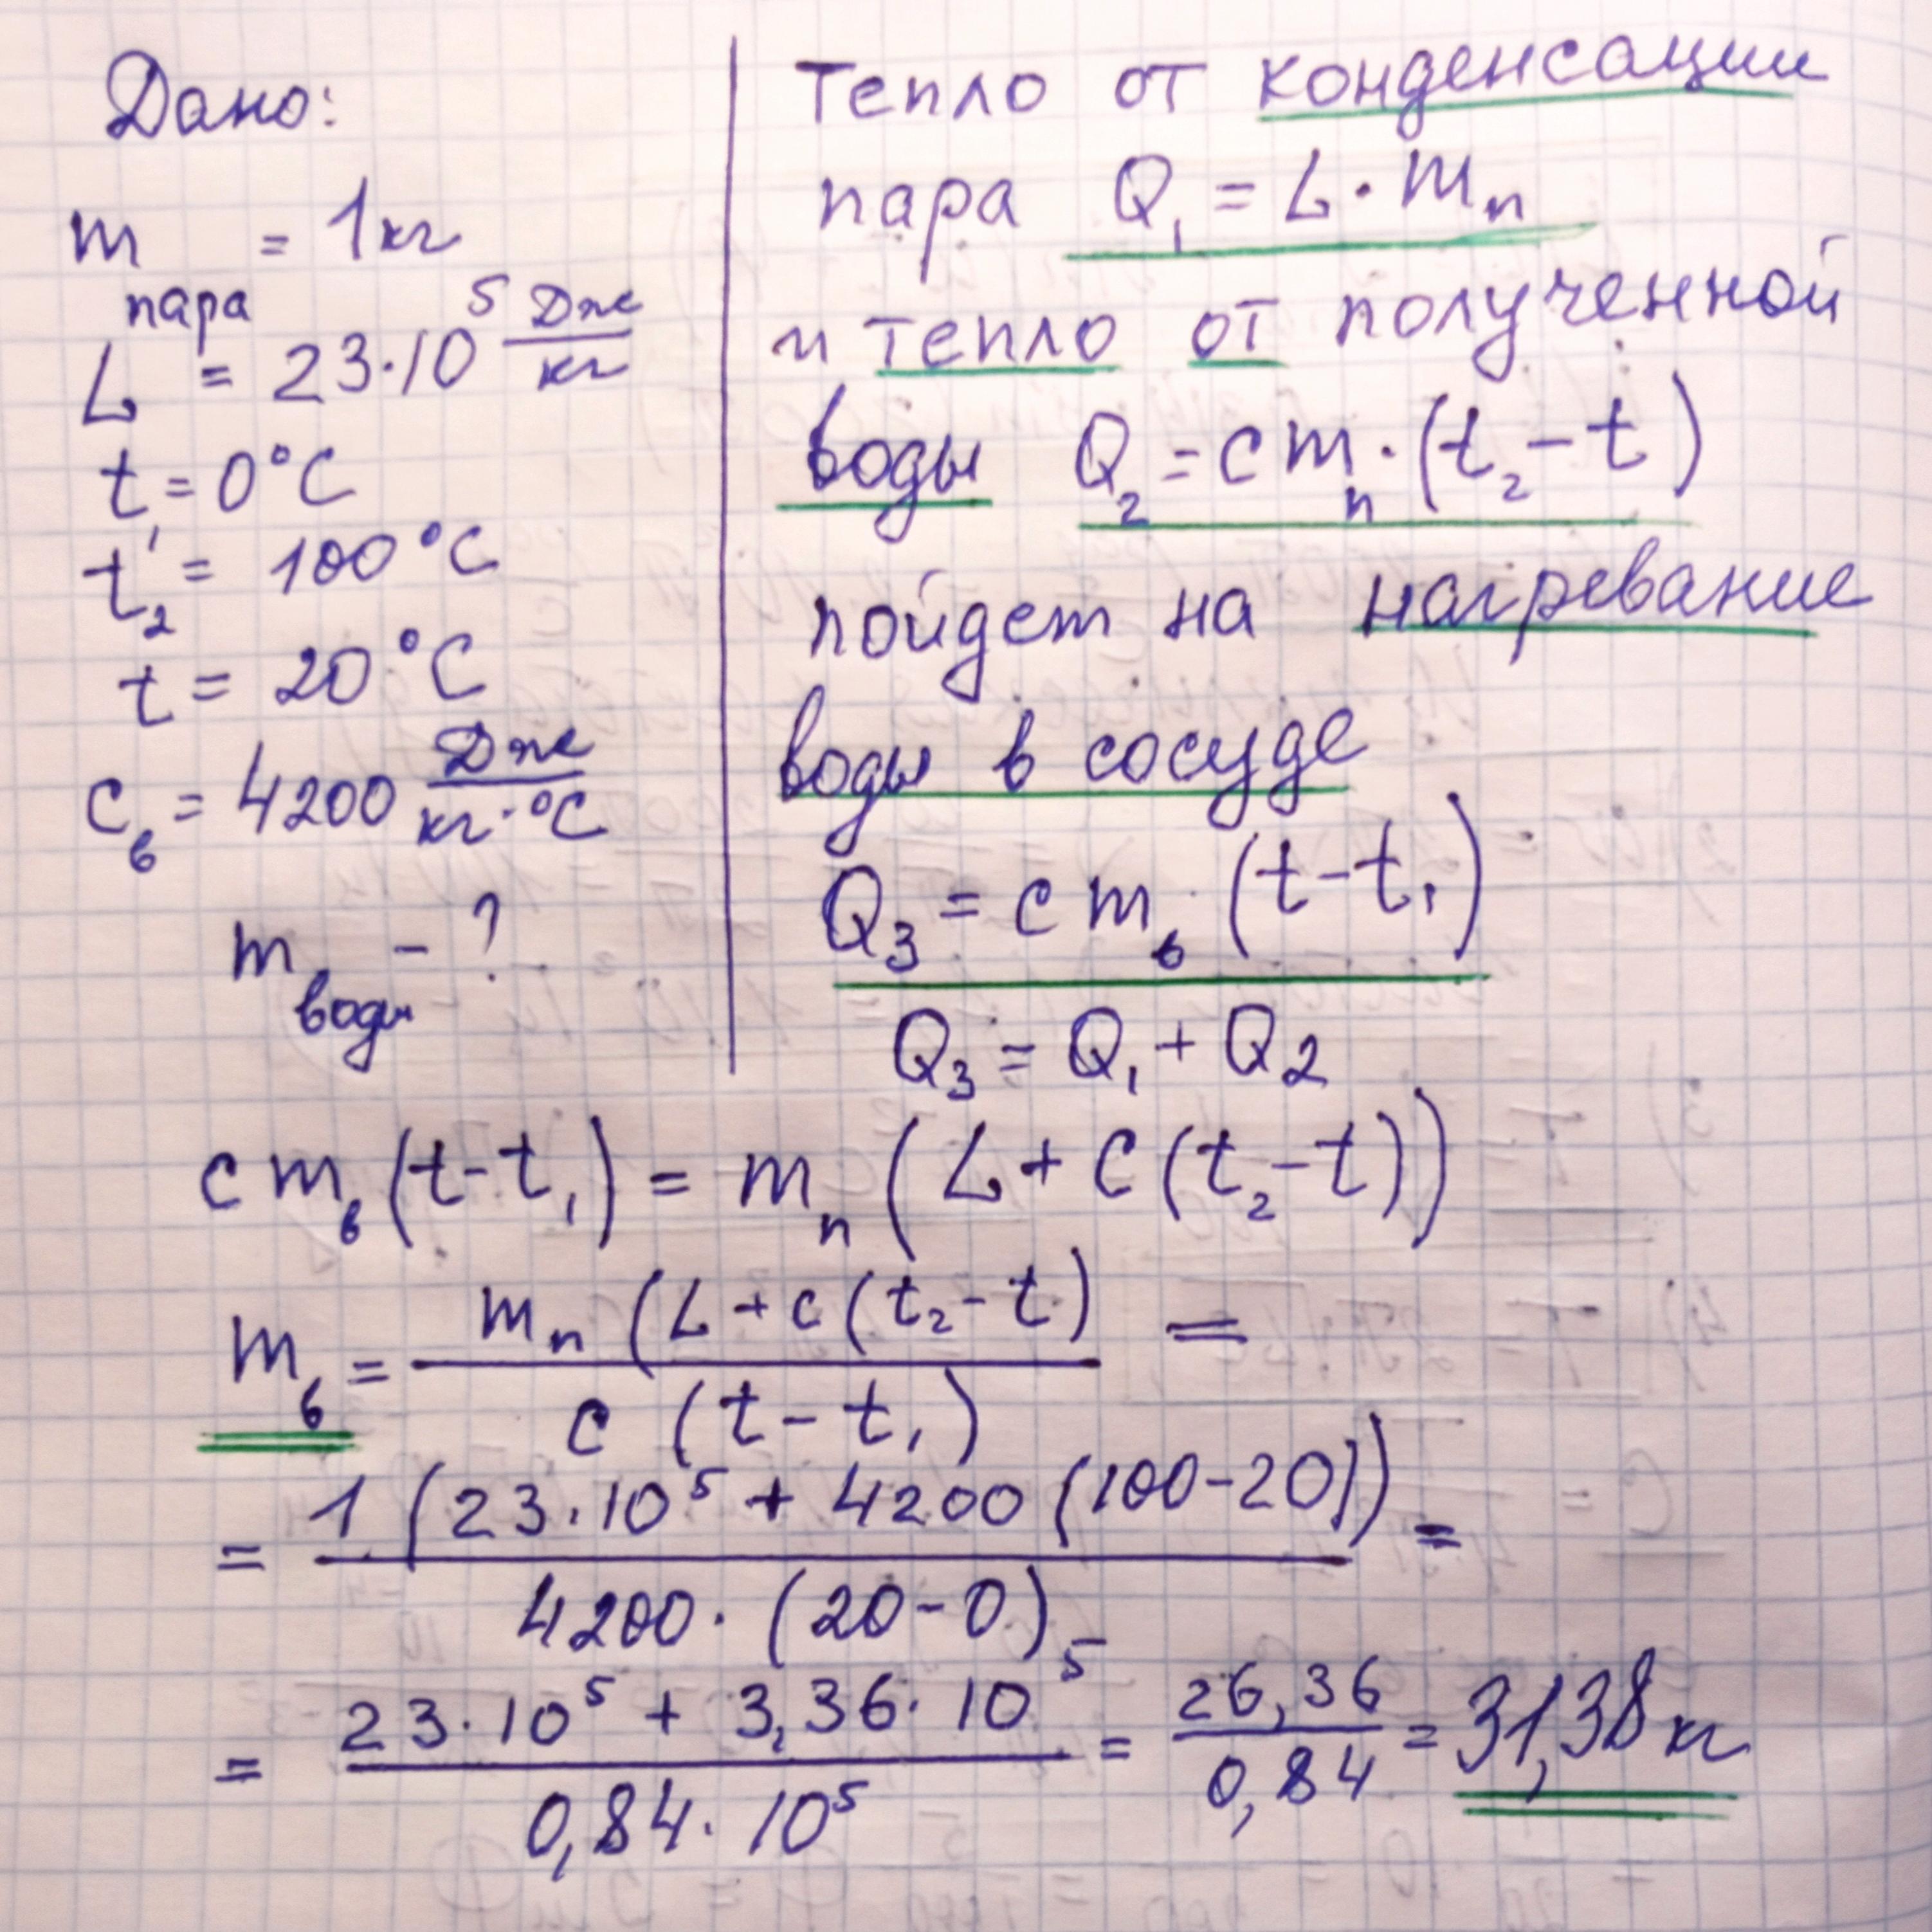 Дано:
m пара = 1 кг
L = 23·10⁵ Дж/кг
t₁ = 0°C
t₂ = 100°C
t = 20°C
cв = 4200 Дж/кг·°C
m воды - ?
Тепло от конденсации
пара Q₁ = L·mп
и тепло от полученной
воды Q₂ = cmп·(t₂-t)
пойдет на нагревание
воды в сосуде
Q₃ = cmв(t-t₁)
Q₃ = Q₁ + Q2
cmв(t-t₁) = mп(L + C(t₂-t))
mв = mп(L + c(t₂-t) / c(t-t₁) =
= 1(23·10⁵ + 4200(100-20)) / 4200·(20-0) =
= 23·10⁵ + 3,36·10⁵ / 0,84·10⁵ = 26,36 / 0,84 = 31,38 кг